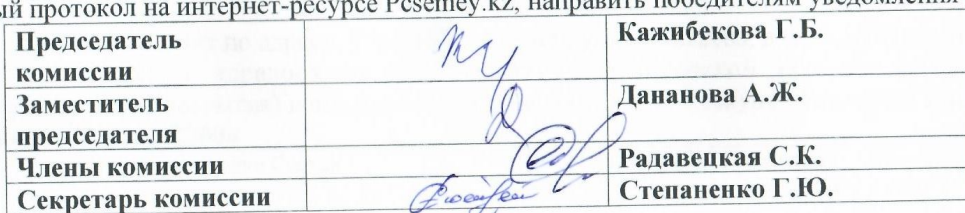 ый протокол на интернет-ресурсе Pcsemey.kz, направить победителям уведомления
Председатель комиссии Кажибекова Г.Б.
Заместитель председателя Дананова А.Ж.
Члены комиссии Радавецкая С.К.
Секретарь комиссии Степаненко Г.Ю.